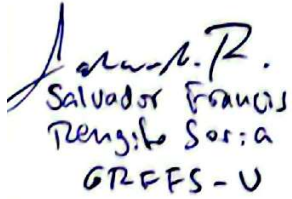 Salvador Francis
Rengifo Soria
GREFFS-U